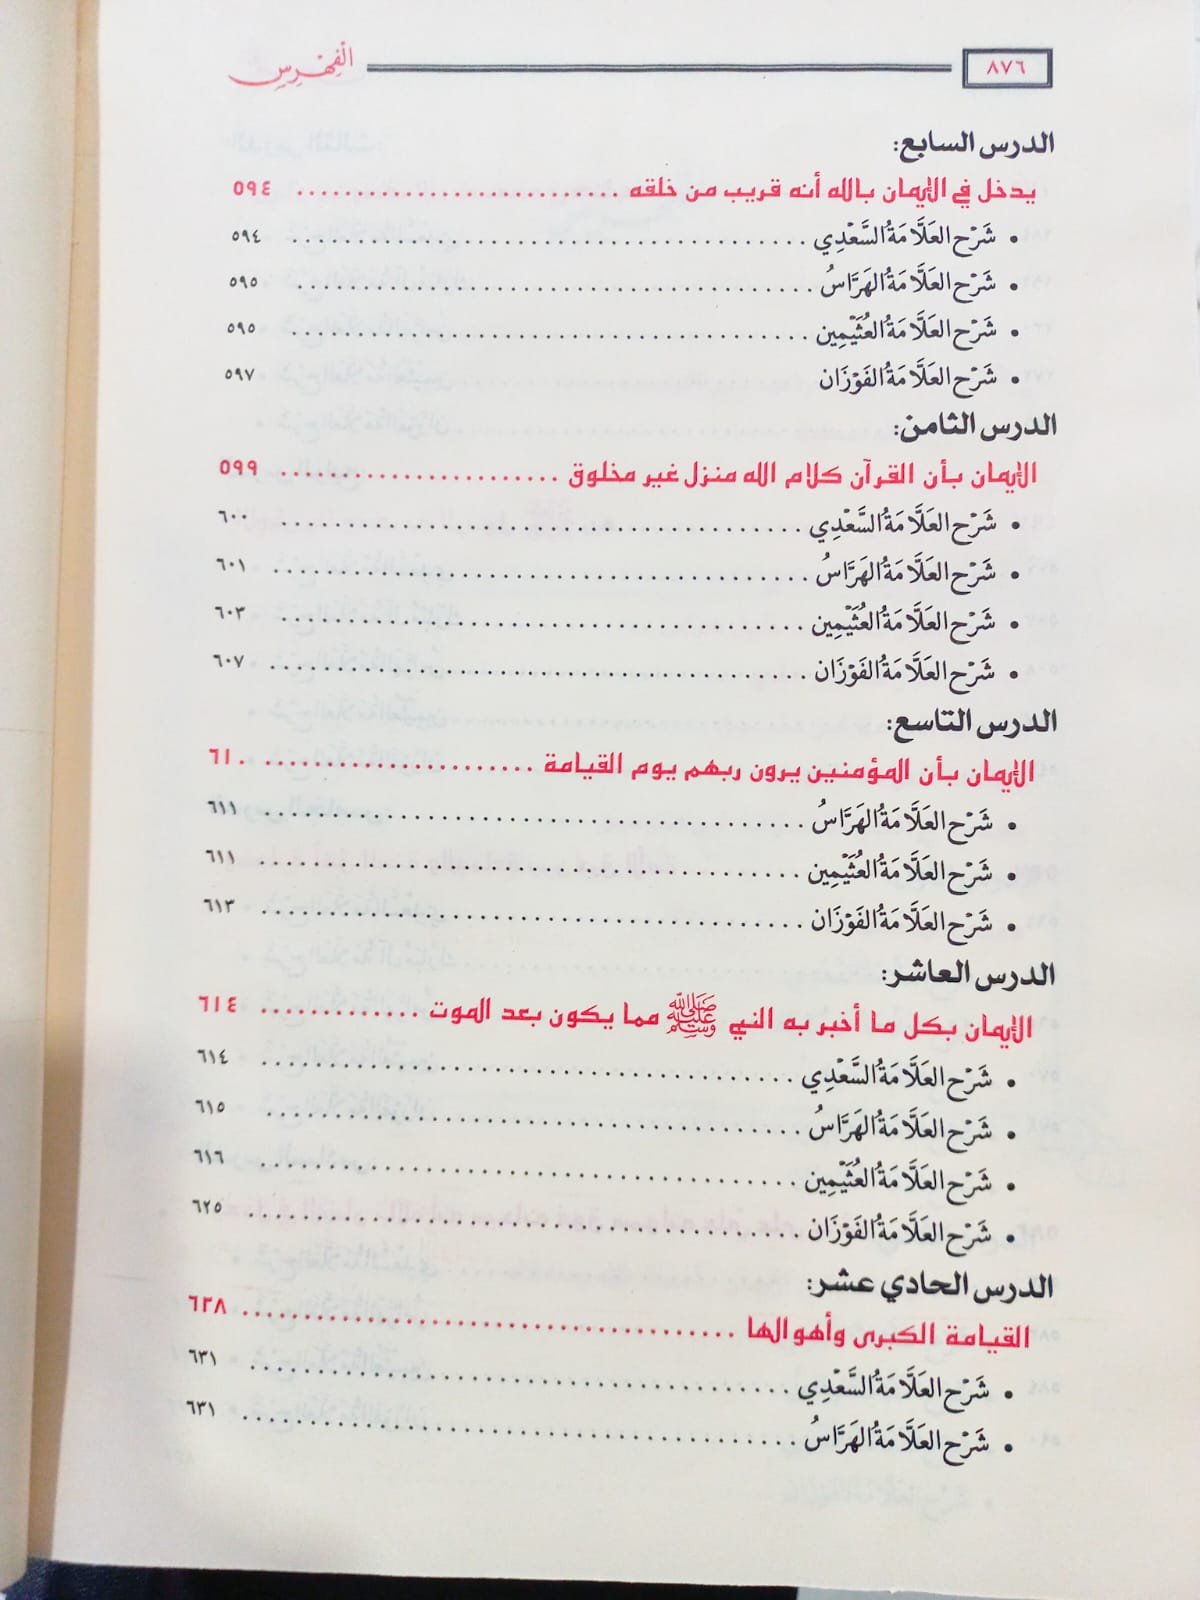 ٨٧٦
الْفِهْرِس
الدرس السابع:
يدخل في الإيمان بالله أنه قريب من خلقه ........................... ٥٩٤
• شَرْح العَلَّامَةُ السَّعْدِي ........................................... ٥٩٤
• شَرْح العَلَّامَةُ الهَرَّاسُ ........................................... ٥٩٥
• شَرْح العَلَّامَةُ العُثَيْمِين ........................................... ٥٩٥
• شَرْح العَلَّامَةُ الفَوْزَان ٥٩٧
الدرس الثامن:
الإيمان بأن القرآن كلام الله منزل غير مخلوق ....................... ٥٩٩
• شَرْح العَلَّامَةُ السَّعْدِي ........................................... ٦٠٠
• شَرْح العَلَّامَةُ الهَرَّاسُ ........................................... ٦٠١
• شَرْح العَلَّامَةُ العُثَيْمِين ........................................... ٦٠٣
• شَرْح العَلَّامَةُ الفَوْزَان ........................................... ٦٠٧
الدرس التاسع:
الإيمان بأن المؤمنين يرون ربهم يوم القيامة ....................... ٦١٠
• شَرْح العَلَّامَةُ الهَرَّاسُ ........................................... ٦١١
• شَرْح العَلَّامَةُ العُثَيْمِين ........................................... ٦١١
• شَرْح العَلَّامَةُ الفَوْزَان ........................................... ٦١٣
الدرس العاشر:
الإيمان بكل ما أخبر به النبي ﷺ مما يكون بعد الموت ............. ٦١٤
• شَرْح العَلَّامَةُ السَّعْدِي ........................................... ٦١٤
• شَرْح العَلَّامَةُ الهَرَّاسُ ........................................... ٦١٥
• شَرْح العَلَّامَةُ العُثَيْمِين ........................................... ٦١٦
• شَرْح العَلَّامَةُ الفَوْزَان ........................................... ٦٢٥
الدرس الحادي عشر:
القيامة الكبرى وأهوالها ......................................... ٦٣٨
• شَرْح العَلَّامَةُ السَّعْدِي ........................................... ٦٣١
• شَرْح العَلَّامَةُ الهَرَّاسُ ........................................... ٦٣١